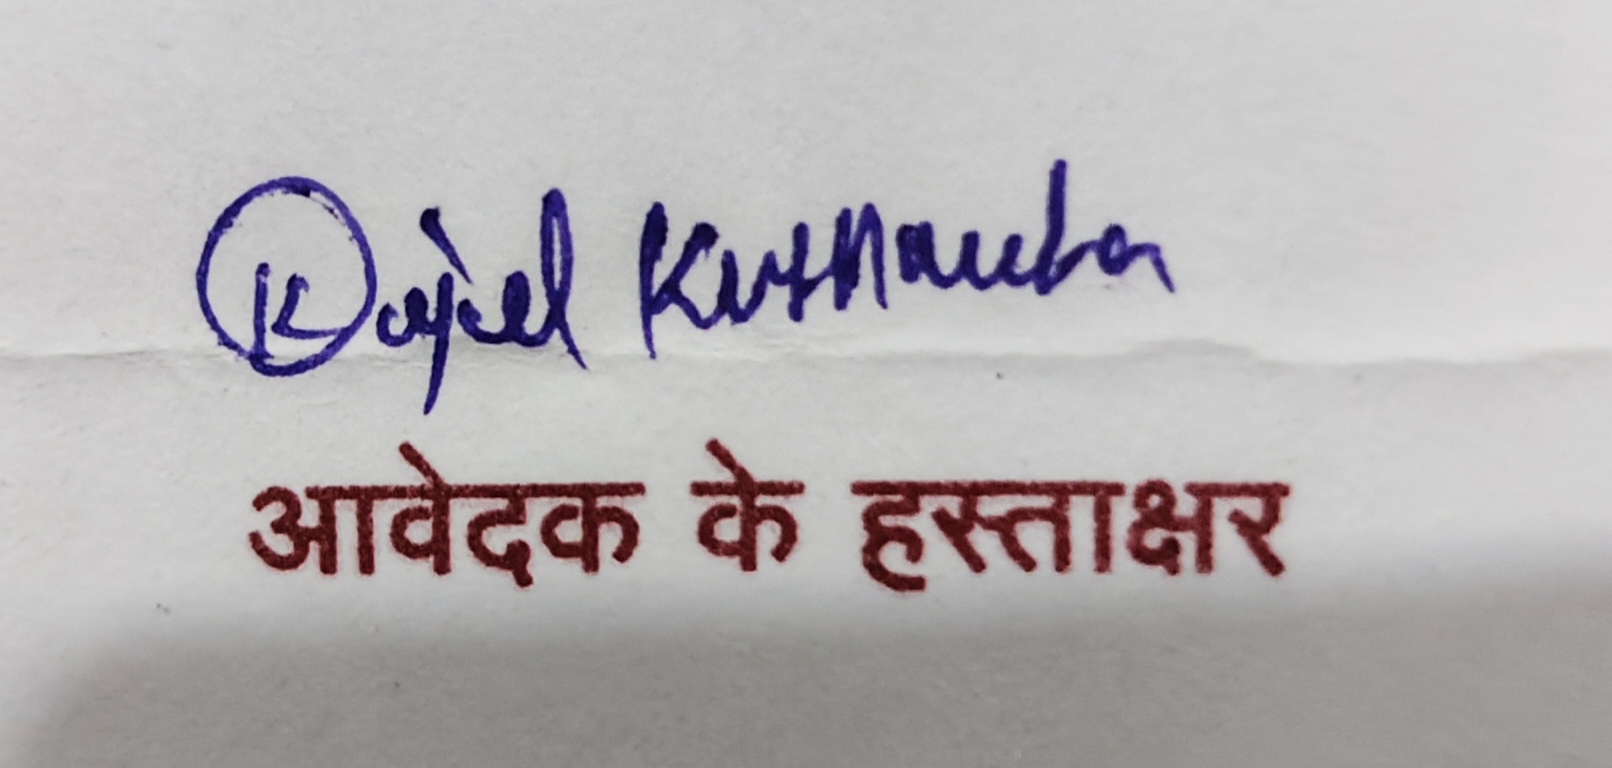 Kajal Kushwaha
आवेदक के हस्ताक्षर